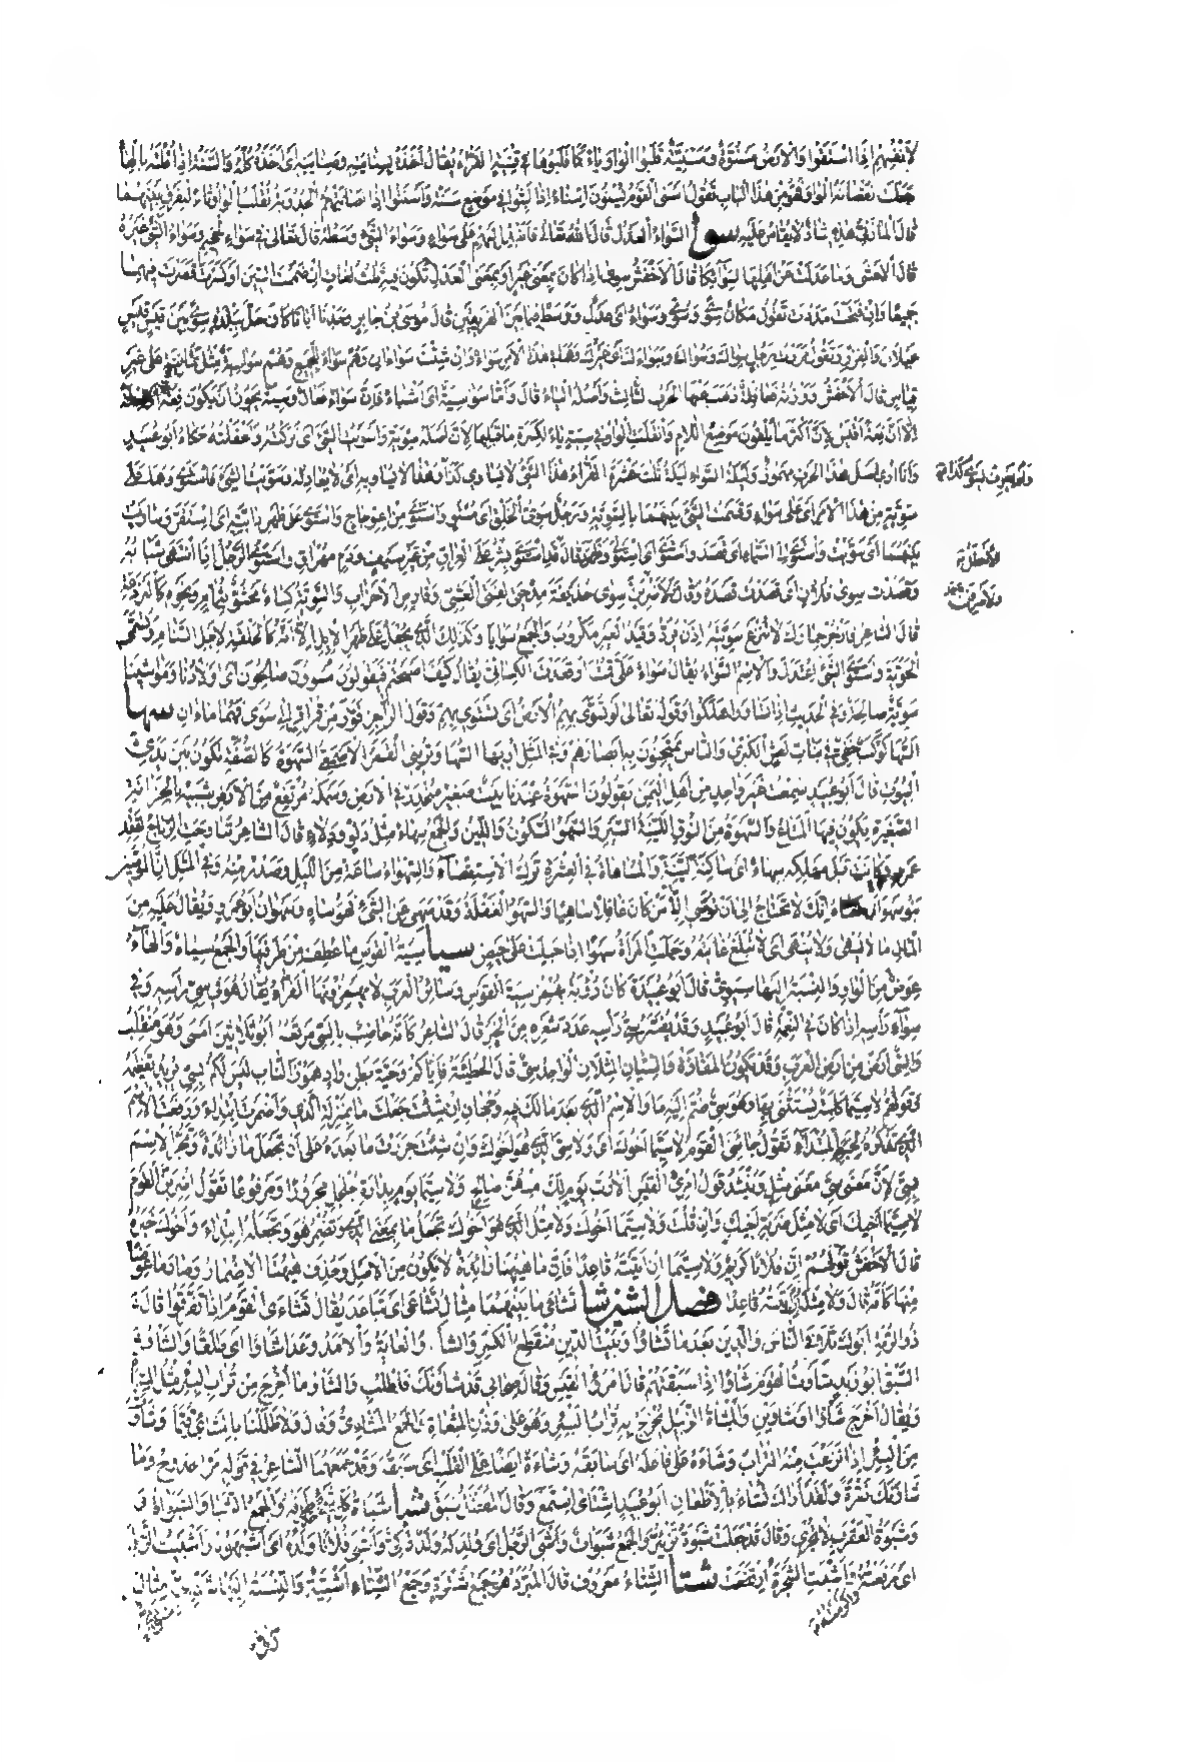 لأنفسهم إذا استقوا والأرض مسنوة ومسنية قلبوا الواو ياء كما قلبوها في قنية الفراء يقال أخذه بسنايته وصنايته أي أخذه كله والسنة إذا قلته بالهاء
جعلت نقصانه الواو وهو من هذا الباب تقول أسنى القوم يسنون إسناء إذا لبثوا في موضع سنة وأسنتوا إذا أصابتهم الجدوبة تقلب الواو تاء للفرق بينهما
قال المازني هذا شاذ لا يقاس عليه سوا السواء العدل قال الله تعالى فانبذ إليهم على سواء وسواء الشيء وسطه قال تعالى في سواء الجحيم وسواء الشيء غيره
قال الأعشى وما عدلت عن أهلها لسوائكا قال الأخفش سوى إذا كان بمعنى غير أو بمعنى العدل تكون فيه ثلث لغات إن ضممت السين أو كسرت قصرت فيهما
جميعا وإن فتحت مددت تقول مكان سوى وسوى وسواء أي عدل ووسط فيما بين الفريقين قال موسى بن جابر وجدنا أبانا كان حل ببلدة سوى بين قيس قيس
عيلان والفزر وتقول مررت برجل سواك وسواك وسوائك أي غيرك وهما في هذا الأمر سواء وإن شئت سواءان وهم سواء للجميع وهم سواسية مثل ثمانية على غير
قياس قال الأخفش ووزنه فعافلة ذهب عنها الحرف الثالث وأصله الياء قال وأما سواسية أي أشباه فإن سواء فعال وسية يجوز أن يكون فعة أو فلة
إلا أن فعة أقيس لأن أكثر ما يلقون موضع اللام وانقلبت الواو في سية ياء لكسرة ما قبلها لأن أصله سوية وأسويت الشيء أي تركته وأغفلته حكاه أبو عبيد
وأنا أرى أصل هذا الحرف مهموز وليلة السواء ليلة ثلث عشرة الفراء هذا الشيء لا يساوي كذا وهذا لا يساويه أي لا يعادله وسويت الشيء فاستوى وهما على
سوية من هذا الأمر أي على سواء وقسمت الشيء بينهما بالسوية ورجل سوي الخلق أي مستو واستوى من اعوجاج واستوى على ظهر دابته أي استقر وساويت
بينهما أي سويت واستوى إلى السماء أي قصد واستوى أي استولى وظهر قال قد استوى بشر على العراق من غير سيف ودم مهراق واستوى الرجل إذا انتهى شبابه
وقصدت سوى فلان أي قصدت قصده وقال لأصرفن سوى حذيفة مدحتي لفتى العشي وفارس الأحزاب والسوية كساء محشو بثمام ونحوه كالبرذعة
قال الشاعر فازجر حمارك لا تنزع سويته إذن يرد وقيد العير مكروب والجمع سوايا وكذلك الذي يجعل على ظهر الإبل إلا أنه كالحلقة لأجل السنام ويسمى
الحوية واستوى الشيء اعتدل والاسم السواء يقال سواء علي قمت أو قعدت الكسائي يقال كيف أصبحتم فيقولون مسوون صالحون أي أولادنا ومواشينا
سوية صالحة وفي الحديث إذا تساووا هلكوا وقوله تعالى لو تسوى بهم الأرض أي تستوي بهم وقول الراجز فورد من قراقر إلى سوى فهما ماءان سها
السها كوكب خفي في بنات نعش الكبرى والناس يمتحنون به أبصارهم وفي المثل أريها السها وتريني القمر الأصمعي السهوة كالصفة تكون بين يدي
البيوت قال أبو عبيد سمعت غير واحد من أهل اليمن يقولون السهوة عندنا بيت صغير منحدر في الأرض وسمكه مرتفع من الأرض شبيه بالخزانة
الصغيرة يكون فيها المتاع والسهوة من النوق اللينة السير والسهو السكون واللين والجمع سهاء مثل دلو ودلاء قال الشاعر تناوحت الرياح لفقد
عمرو وكانت قبل مهلكه سهاء أي ساكنة لينة والمساهاة في العشرة ترك الاستقصاء والسهواء ساعة من الليل وصدر منه وفي المثل إن الموصين
بنو سهوان معناه أنك لا تحتاج إلى أن توصي إلا من كان غافلا ساهيا والسهو الغفلة وقد سهى عن الشيء فهو ساه وسهوان أبو عمرو ويقال عليه من
المال ما لا يسهى ولا ينهى أي لا تبلغ غايته وحملت المرأة سهوا إذا حبلت على حيض سيا سية القوس ما عطف من طرفيها والجمع سيات والهاء
عوض من الواو والنسبة إليها سيوي قال أبو عبيدة كان رؤبة يهمز سية القوس وسائر العرب لا يهمزونها الفراء يقال هو في سي رأسه وفي
سواء رأسه إذا كان في النعمة قال أبو عبيد وقد يفسر سي رأسه عدد شعره من الخير قال الشاعر كأنه خاضب بالسي مرتعه أبو ثلاثين أمسى وهو منقلب
والسي أرض من أرض العرب وقد يكون المفازة والسيان المثلان الواحد سي قال الحطيئة فإياكم وحية بطن واد هموز الناب ليس لكم بسي يريد تعظيمه
وقولهم لا سيما كلمة يستثنى بها وهو سي ضم إليه ما والاسم الذي بعد ما لك فيه وجهان إن شئت جعلت ما بمنزلة الذي وأضمرت ابتداء ورفعت الاسم
الذي تذكره لخبر المبتدأ تقول جاءني القوم لا سيما أخوك أي ولا سي الذي هو أخوك وإن شئت جررت ما بعده على أن تجعل ما زائدة وتجر الاسم
بسي لأن معنى سي معنى مثل وينشد قول امرئ القيس ألا رب يوم لك منهن صالح ولا سيما يوم بدارة جلجل مجرورا ومرفوعا تقول اضرب القوم
لا سيما أخيك أي لا مثل ضربة أخيك وإن قلت ولا سيما أخوك أي ولا مثل الذي هو أخوك تجعل ما بمعنى الذي وتضمر هو وتجعله ابتداء وأخوك خبره
قال الأخفش قولهم إن فلانا كريم ولا سيما إن أتيته قاعدا فإن ما هيهنا زائدة لا يكون من الأصل وحذف هيهنا الإضمار وصار ما عوضا
منها كأنه قال ولا مثله إن أتيته قاعدا فصل الشين شآ تشاءى ما بينهما مثال تشاعى أي تباعد يقال تشاءى القوم إذا تفرقوا قال
ذو الرمة أبوك تلافى الناس والدين بعد ما تشاءوا وبيت الدين منقطع الكسر والشأو الغاية والأمد وعدا شأوا أي طلقا والشأو
السبق أبو زيد شأوت القوم شأوا إذا سبقتهم قال امرؤ القيس وقال صحابي قد شأونك فاطلب والشأو ما أخرج من تراب البئر مثل المشآة
ويقال أخرج شأوا أو شأوين والمشآة الزبيل يخرج به تراب البئر وهو على وزن المشعاة والجمع المشائي
من البئر إذا نزعت منه التراب وشاءه على فاعله أي سابقه وشاءه أيضا على القلب أي سبقه وقد جمعهما الشاعر في قوله مر الحدوج وما
شأونك نقرة ولقد أراك تشاء بالأظعان أبو عبيد اشتأى استمع وقال المفضل سبق شبا شباة كل شيء حد طرفه والجمع الشبا والشبوات
وشبوة العقرب لا تجرى وقال قد جعلت شبوة تزبئر والجمع شبوات وأشبى الرجل أي ولد له ولد ذكي وأشبى فلانا ولده أي أشبهوه
شتا الشتاء معروف قال المبرد هو جمع شتوة وجمع الشتاء أشتية والنسبة إليها شتوي